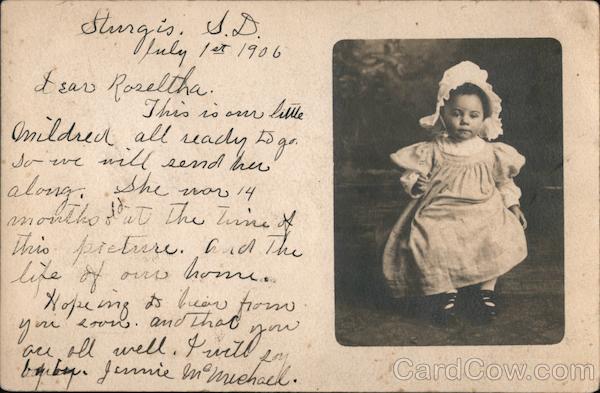 Sturgis. S.D.
July 1st 1906
Dear Roseltha.
This is our little
Mildred all ready to go.
so we will send her
along. She was 14
months old at the time of
this picture. and the
life of our home.
Hopeing to hear from
you soon. and that you
are all well. I will say
by by. Jennie McMichael.
CardCow.com